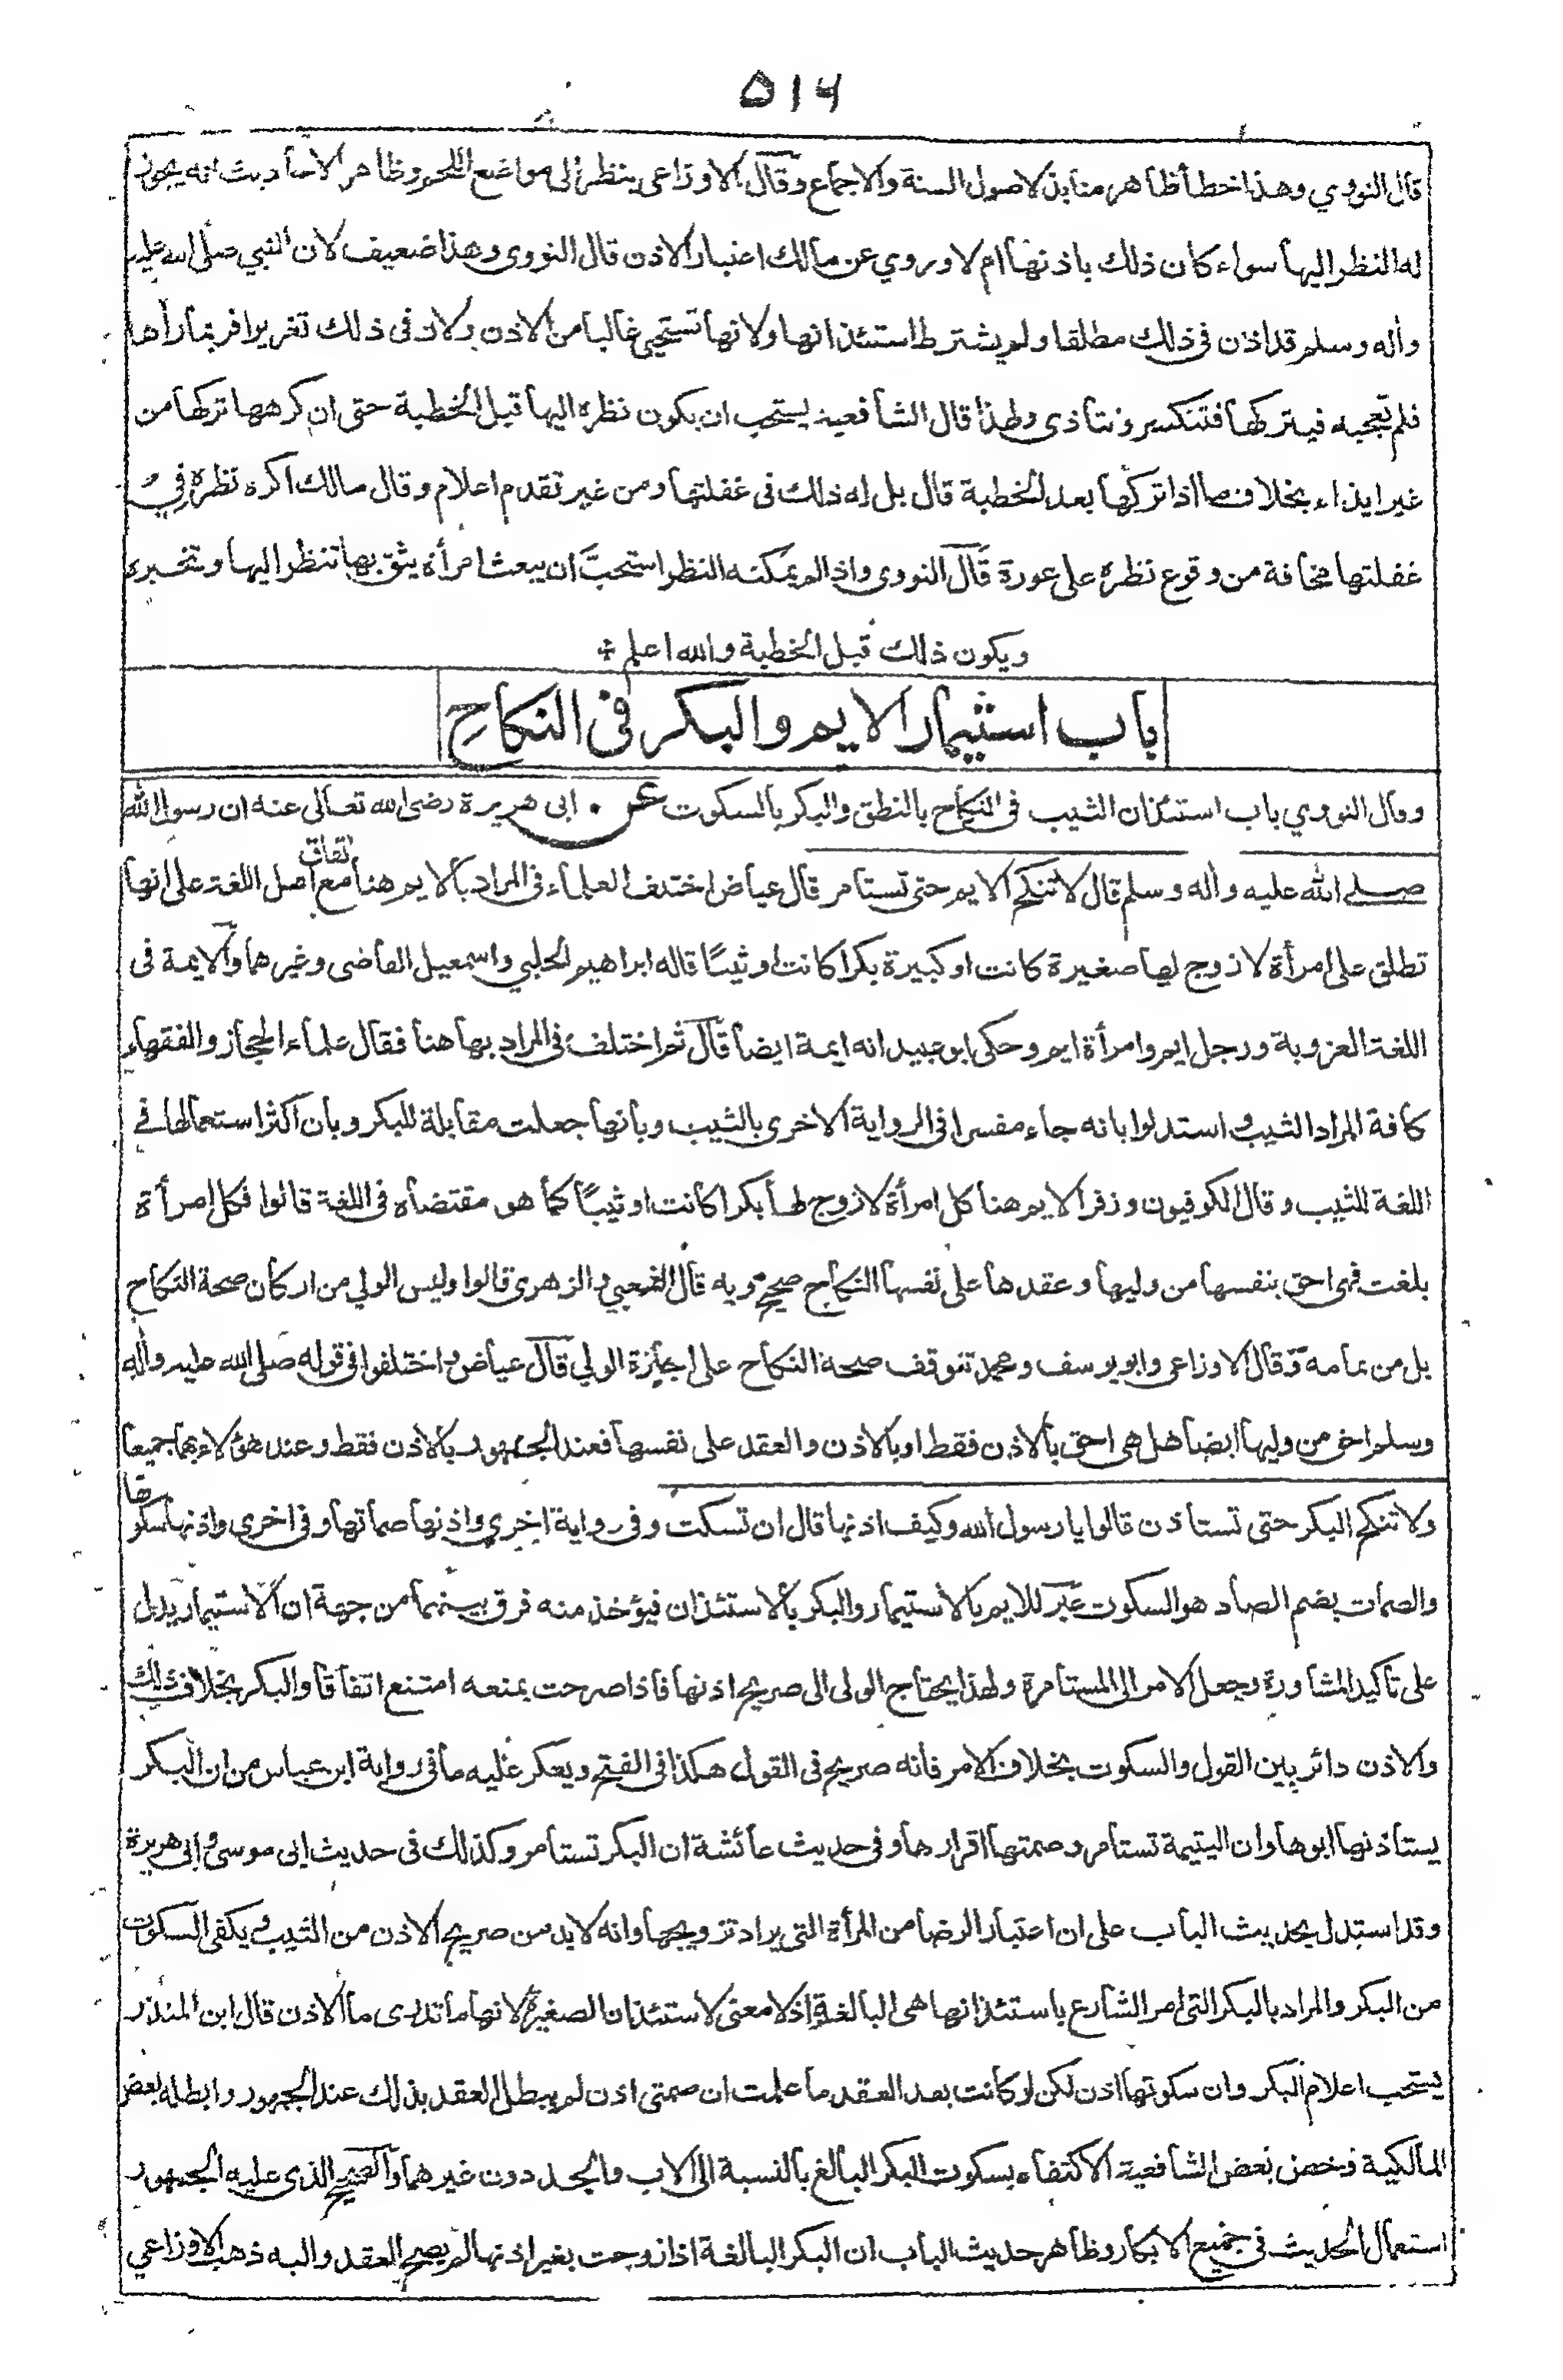 ٥١٦
قال النووي وهذا خطأ ظاهر منابذ لاصول السنة والاجماع وقال الاوزاعى ينظر الى مواضع اللحم وظاهر الاحاديث انه يجوز
له النظر اليها سواء كان ذلك باذنها ام لا وروي عن مالك اعتبار الاذن قال النووى وهذا ضعيف لان النبي صلى الله عليه
واله وسلم قد اذن فى ذلك مطلقا ولم يشترط استئذانها ولانها تستحيى غالبا من الاذن ولان فى ذلك تغريرا فربما رأها
فلم تعجبه فيتركها فتنكسر وتتأذى ولهذا قال الشافعية يستحب ان يكون نظره اليها قبل الخطبة حتى ان كرهها تركها من
غير ايذاء بخلاف ما اذا تركها بعد الخطبة قال بل له ذلك فى غفلتها ومن غير تقدم اعلام وقال مالك اكره نظره في
غفلتها مخافة من وقوع نظره على عورة قال النووى واذا لم يمكنه النظر استحب ان يبعث امرأة يثق بها تنظر اليها وتخبره
ويكون ذلك قبل الخطبة والله اعلم
باب استيمار الايم والبكر فى النكاح
وقال النووي باب استئذان الثيب فى النكاح بالنطق والبكر بالسكوت عن ابى هريرة رضى الله تعالى عنه ان رسول الله
صلے الله عليه واله وسلم قال لا تنكح الايم حتى تستامر قال عياض اختلف العلماء فى المراد بالايم هنا مع اتفاق اصل اللغة على انها
تطلق على امرأة لا زوج لها صغيرة كانت او كبيرة بكرا كانت او ثيبًا قاله ابراهيم الحلبي واسمعيل القاضى وغيرهما والايمة فى
اللغة العزوبة ورجل ايم وامرأة ايم وحكى ابو عبيد انه ايمة ايضا قال ثم اختلف فى المراد بها هنا فقال علماء الحجاز والفقهاء
كافة المراد الثيب واستدلوا بانه جاء مفسرا فى الرواية الاخرى بالثيب وبانها جعلت مقابلة للبكر وبان اكثر استعمالها فے
اللغة للثيب وقال الكوفيون وزفر الايم هنا كل امرأة لا زوج لها بكرا كانت او ثيبًا كما هو مقتضاه فى اللغة قالوا فكل امرأة
بلغت فهى احق بنفسها من وليها وعقدها على نفسها النكاح صحيح وبه قال الشعبي والزهرى قالوا وليس الولي من اركان صحة النكاح
بل من تمامه وقال الاوزاعى وابو يوسف ومحمد تتوقف صحة النكاح على اجازة الولي قال عياض واختلفوا فى قوله صلى الله عليه واله
وسلم احق من وليها ايضا هل هى احق بالاذن فقط او بالاذن والعقد على نفسها فعند الجمهور بالاذن فقط وعند هؤلاء بهما جميعا
ولا تنكح البكر حتى تستاذن قالوا يا رسول الله وكيف اذنها قال ان تسكت وفى رواية اخرى واذنها صماتها وفى اخرى واذنها سكوتها
والصمات بضم الصاد هو السكوت عبر للايم بالاستيمار والبكر بالاستئذان فيؤخذ منه فرق بينهما من جهة ان الاستيمار يدل
على تاكيد المشاورة وجعل الامر الى المستامرة ولهذا يحتاج الولى الى صريح اذنها فاذا صرحت بمنعه امتنع اتفاقا والبكر بخلاف ذلك
والاذن دائر بين القول والسكوت بخلاف الامر فانه صريح فى القول هكذا فى الفتح ويعكر عليه ما فى رواية ابن عباس من ان البكر
يستاذنها ابوها وان اليتيمة تستامر وصمتها اقرارها وفى حديث عائشة ان البكر تستامر وكذلك فى حديث ابى موسى وابى هريرة
وقد استدل بحديث الباب على ان اعتبار الرضا من المرأة التى يراد تزويجها وانه لا بد من صريح الاذن من الثيب ويكفى السكوت
من البكر والمراد بالبكر التى امر الشارع باستئذانها هى البالغة اذ لا معنى لاستئذان الصغيرة لانها ما تدرى ما الاذن قال ابن المنذر
يستحب اعلام البكر وان سكوتها اذن لكن لو كانت بعد العقد ما علمت ان صمتى اذن لم يبطل العقد بذلك عند الجمهور وابطله بعض
المالكية وخص بعض الشافعية الاكتفاء بسكوت البكر البالغ بالنسبة الى الاب والجد دون غيرهما والصحيح الذى عليه الجمهور
استعمال الحديث فى جميع الابكار وظاهر حديث الباب ان البكر البالغة اذا زوجت بغير اذنها لم يصح العقد واليه ذهب الاوزاعي